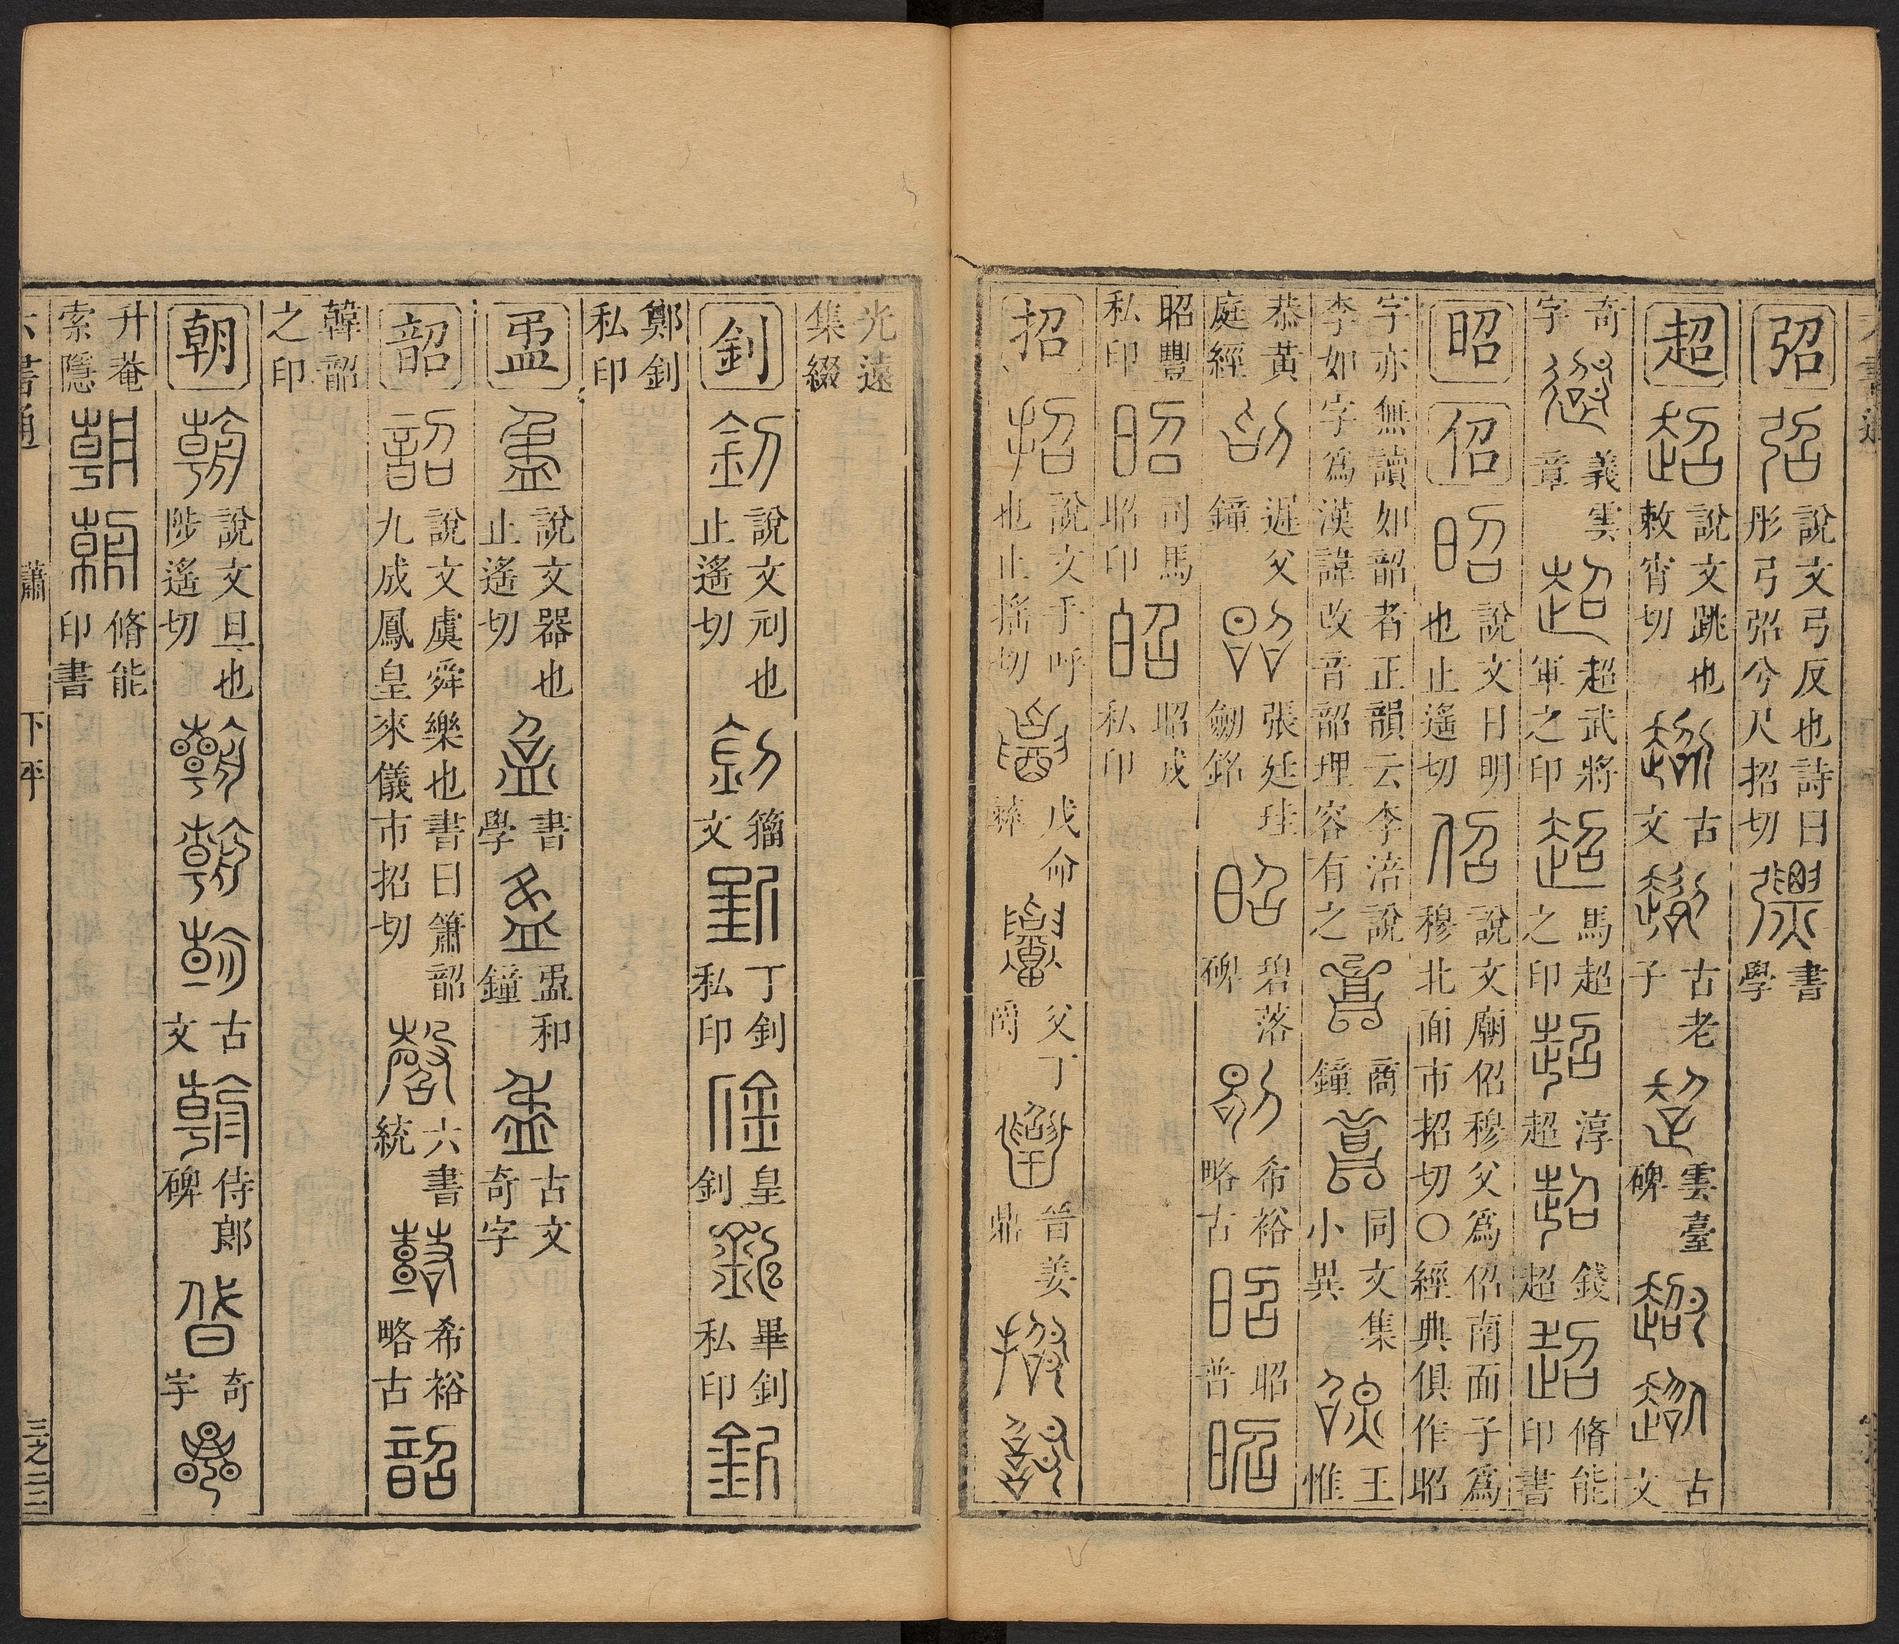 弨 說文弓反也詩曰彤弓弨兮尺招切 書學
超 說文跳也敕宵切 古文 古老子 雲臺碑 古文
奇字 義雲章 超武將軍之印 馬超之印 淳超 錢超 脩能印書
昭 佋 說文日明也止遙切 說文廟佋穆父爲佋南面子爲穆北面市招切〇經典俱作昭
字亦無讀如韶者正韻云李涪說李如字爲漢諱改音韶理容有之 商鐘 同文集小異 王惟
恭黃庭經 遲父鐘 張廷珪劒銘 碧落碑 希裕略古 昭普
昭豐私印 司馬昭印 昭成私印
招 說文手呼也止搖切 戊命彝 父丁爵 晉姜鼎
光遠集綴
釗 說文刓也止遙切 籀文 丁釗私印 皇釗 畢釗私印
鄭釗私印
盄 說文器也止遙切 書學 盄和鐘 古文奇字
韶 說文虞舜樂也書曰簫韶九成鳳皇來儀市招切 六書統 希裕略古
韓韶之印
朝 說文旦也陟遙切 古文 侍郎碑 奇字
升菴索隱 脩能印書
六書通 蕭 下平 三之二三